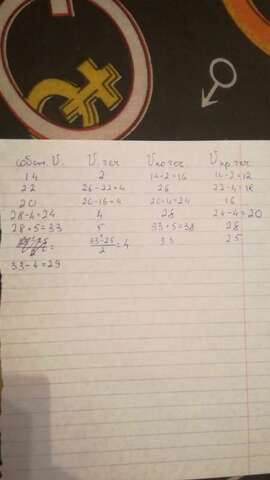 собст. V. V. теч V по теч. V пр. теч
14 2 14+2=16 14-2=12
22 26-22=4 26 22-4=18
20 20-16=4 20+4=24 16
28-4=24 4 28 24-4=20
28+5=33 5 33+5=38 28
33-25/2=4 33 25
33-4=29